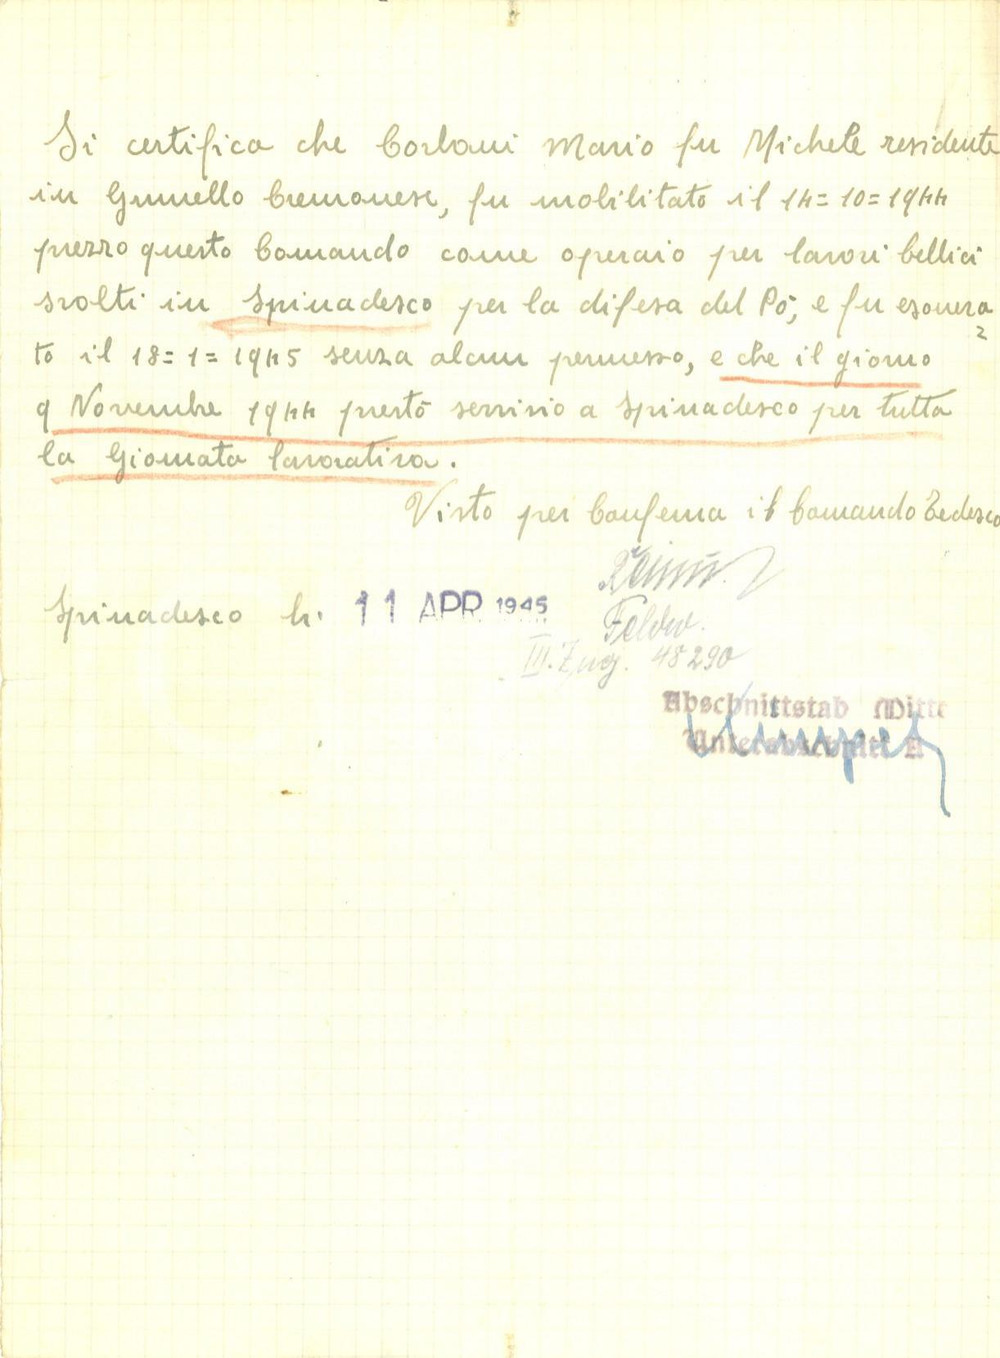 Si certifica che Corbani Mario fu Michele residente
in Grumello Cremonese, fu mobilitato il 14=10=1944
prezzo questo Comando come operaio per lavori bellici
svolti in Spinadesco per la difesa del Pó, e fu esonera
to il 18=1=1945 senza alcun permesso, e che il giorno
9 Novembre 1944 prestò servisio a Spinadesco per tutta
la Giornata lavorativa.
Visto per Conferma il Comando Tedesco
Spinadesco li. 11 APR. 1945
Feldw.
III. Zug. 48290
Abschnittstab Mitte
Unterabschnitt